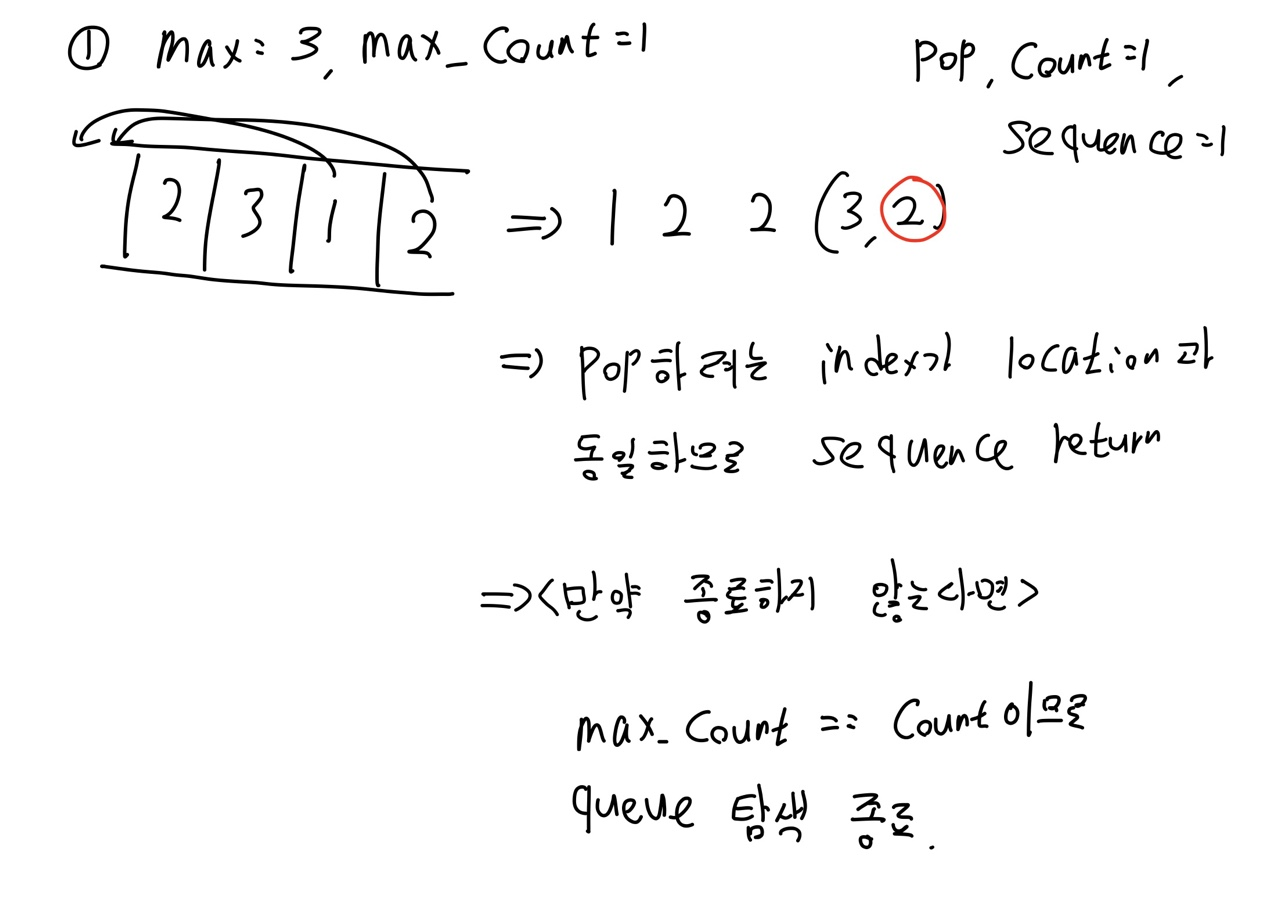 ① max = 3, max_Count = 1
pop, Count = 1,
sequence = 1
2 3 1 2 => 1 2 2 (3, 2)
=> pop하려는 index가 location과
동일하므로 sequence return
=> <만약 종료하지 않는다면>
max_Count == Count이므로
queue 탐색 종료.